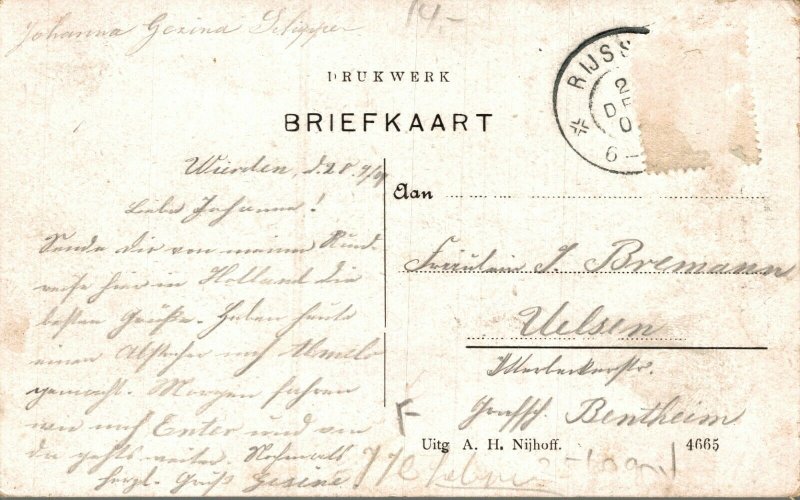 Johanna Gezina Schipper
14.-
DRUKWERK
BRIEFKAART
RIJSS
2
DE
0
6-
Wierden, d. 28.
Liebe Johanna!
Sende Dir von meiner Rund-
reise hier in Holland die
besten Grüße. Haben heute
einen Abstecher nach Almelo
gemacht. Morgen fahren
wir nach Enter und von
da gehts weiter. Nochmals
herzl. Gruß Gesine
Aan
Fräulein J. Bremann
Uelsen
Itterbeckerstr.
Grafsch. Bentheim
Uitg A. H. Nijhoff. 4665